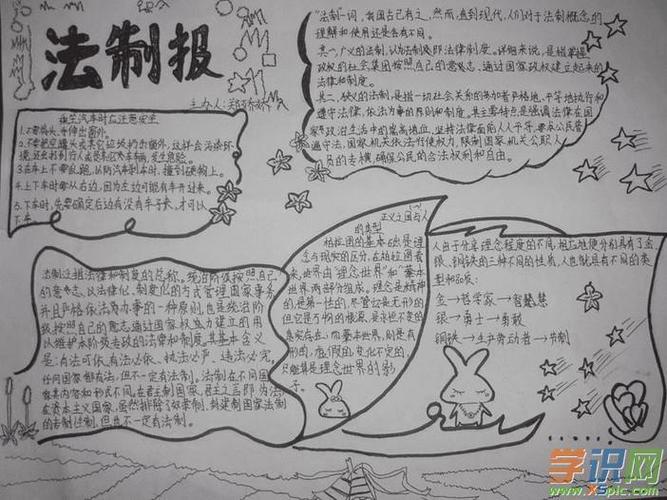 法制报
主办人:郑
乘坐汽车时应注意安全
1.不要将头、手伸出窗外。
2.不要把空罐头或其它垃圾扔出窗外,这样会污染环
境,还会打到行人或后来的其它车辆,发生危险。
3.在车上不要乱跑,以防汽车刹车时,撞到硬物上。
4.上下车时要从右边,因为左边可能有车开过来。
5.下车时,先要确定后边有没有车子来,才可以
下车
"法制"一词,我国古已有之,然而,直到现代,人们对于法制概念的
理解和使用还是各有不同。
其一、广义的法制,认为法制及即法律制度。详细来说,是指掌握
政权的社会集团按照自己的意志、通过国家政权建立起来的
法律和制度。
其二、狭义的法制,是指一切社会关系的参加者严格地、平等地执行和
遵守法律,依法办事的原则和制度。其主要特点是强调法律在国
家政治生活中的崇高地位,坚持法律面前人人平等,要求公民普
遍守法,国家机关依法行使权力,限制国家机关公职人
员的专横,确保公民的合法权利和自由。
法制泛指法律和制度的总称。统治阶级按照自己
的意志,以法律化、制度化的方式管理国家事务
并且严格依法办事的一种原则,也是统治阶
级按照自己的意志通过国家权力建立的用
以维护本阶级专政的法律和制度。其基本含义
是:有法可依、有法必依、执法必严、违法必究。
任何国家都有法,但不一定有法制。法制在不同国
家其内容和形式不同,在君主制国家,君主之言即为法,
在资本主义国家,虽然排除了奴隶制、封建制国家法制
的专制性制,但也不一定有法制。
正义之国与人
的类型
柏拉图的基本出是理
念与现实的区分,在柏拉图看
来,世界由"理念世界"和"摹本
世界"两部份组成。理念是精神
的,是第一性的,尽管它是无形的,
但它是万物的根源,是永恒不变的
真实存在。而摹本世界,则是有
形的、虚假的、变化不定的,
只能算是理念世界的影
子。
人由于分享理念程度的不同,相应地便分别具有了金
银、铜铁的三种不同的性质,人也就具有不同的类
型和品级:
金→哲学家→智慧
银→勇士→勇敢
铜铁→生产劳动者→节制
学识网
www.XSpic.com